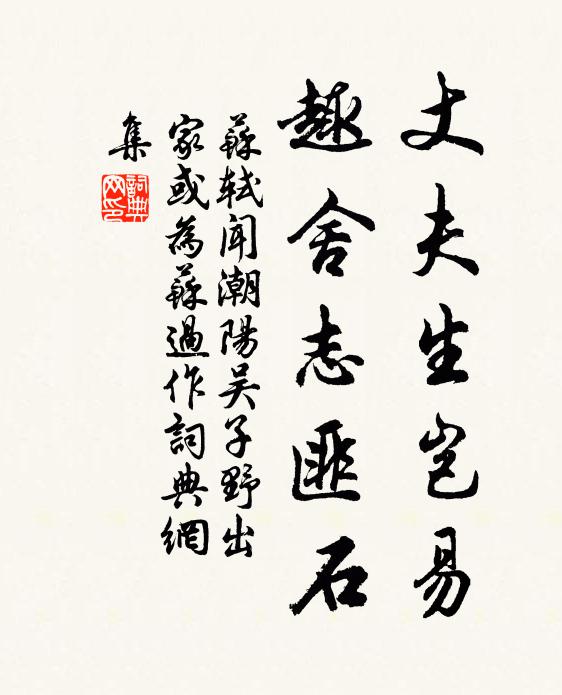 丈夫生豈易
趣舍志匪石
蘇軾聞潮陽吴子野出
家或為蘇過作詞典網
集
詞典
网印